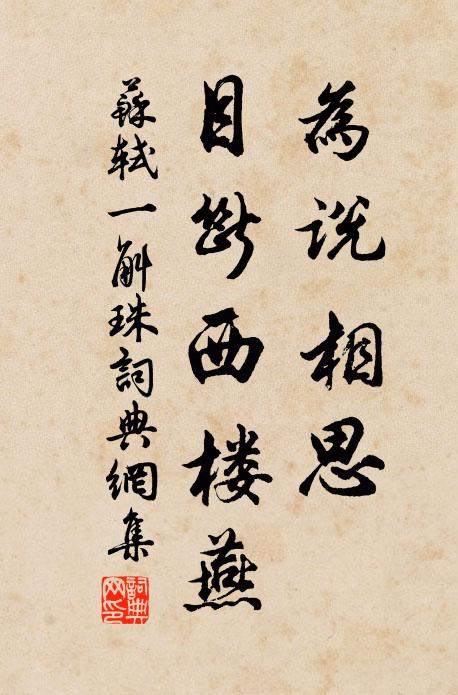 為說相思
目斷西楼燕
蘇軾一斛珠詞典網集
詞典網印